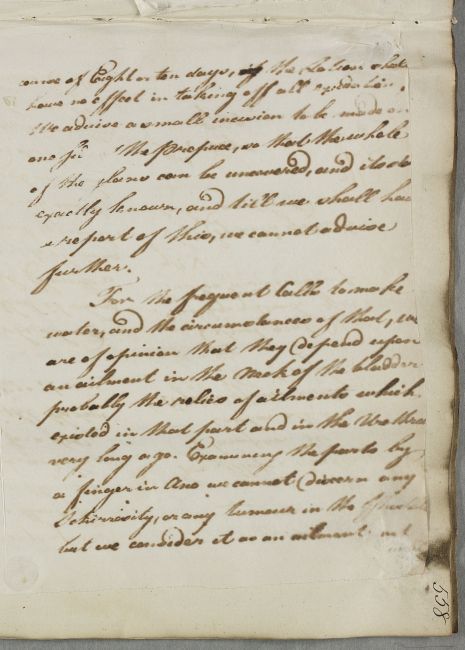 course of Eight or ten days, if the Lotion shall
have no effect in taking off all excoriation,
We advise a small incision to be made on
one side the Prepuce, so that the whole
of the Glans can be uncovered, and its state
exactly known, and till we shall have
a report of this, we cannot advise
further.
For the frequent Calls to make
water, and the circumstances of that, we
are of opinion that they depend upon
an ailment in the Neck of the bladder
probably the relics of ailments which
existed in that part and in the Urethra
very long ago. Examining the parts by
a finger in Ano we cannot discern any
Schirrosity, or any tumour in the
but we consider it as an ailment not
558